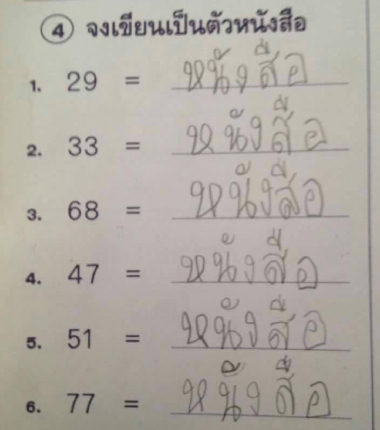 4 จงเขียนเป็นตัวหนังสือ
1. 29 = หนังสือ
2. 33 = หนังสือ
3. 68 = หนังสือ
4. 47 = หนังสือ
5. 51 = หนังสือ
6. 77 = หนังสือ